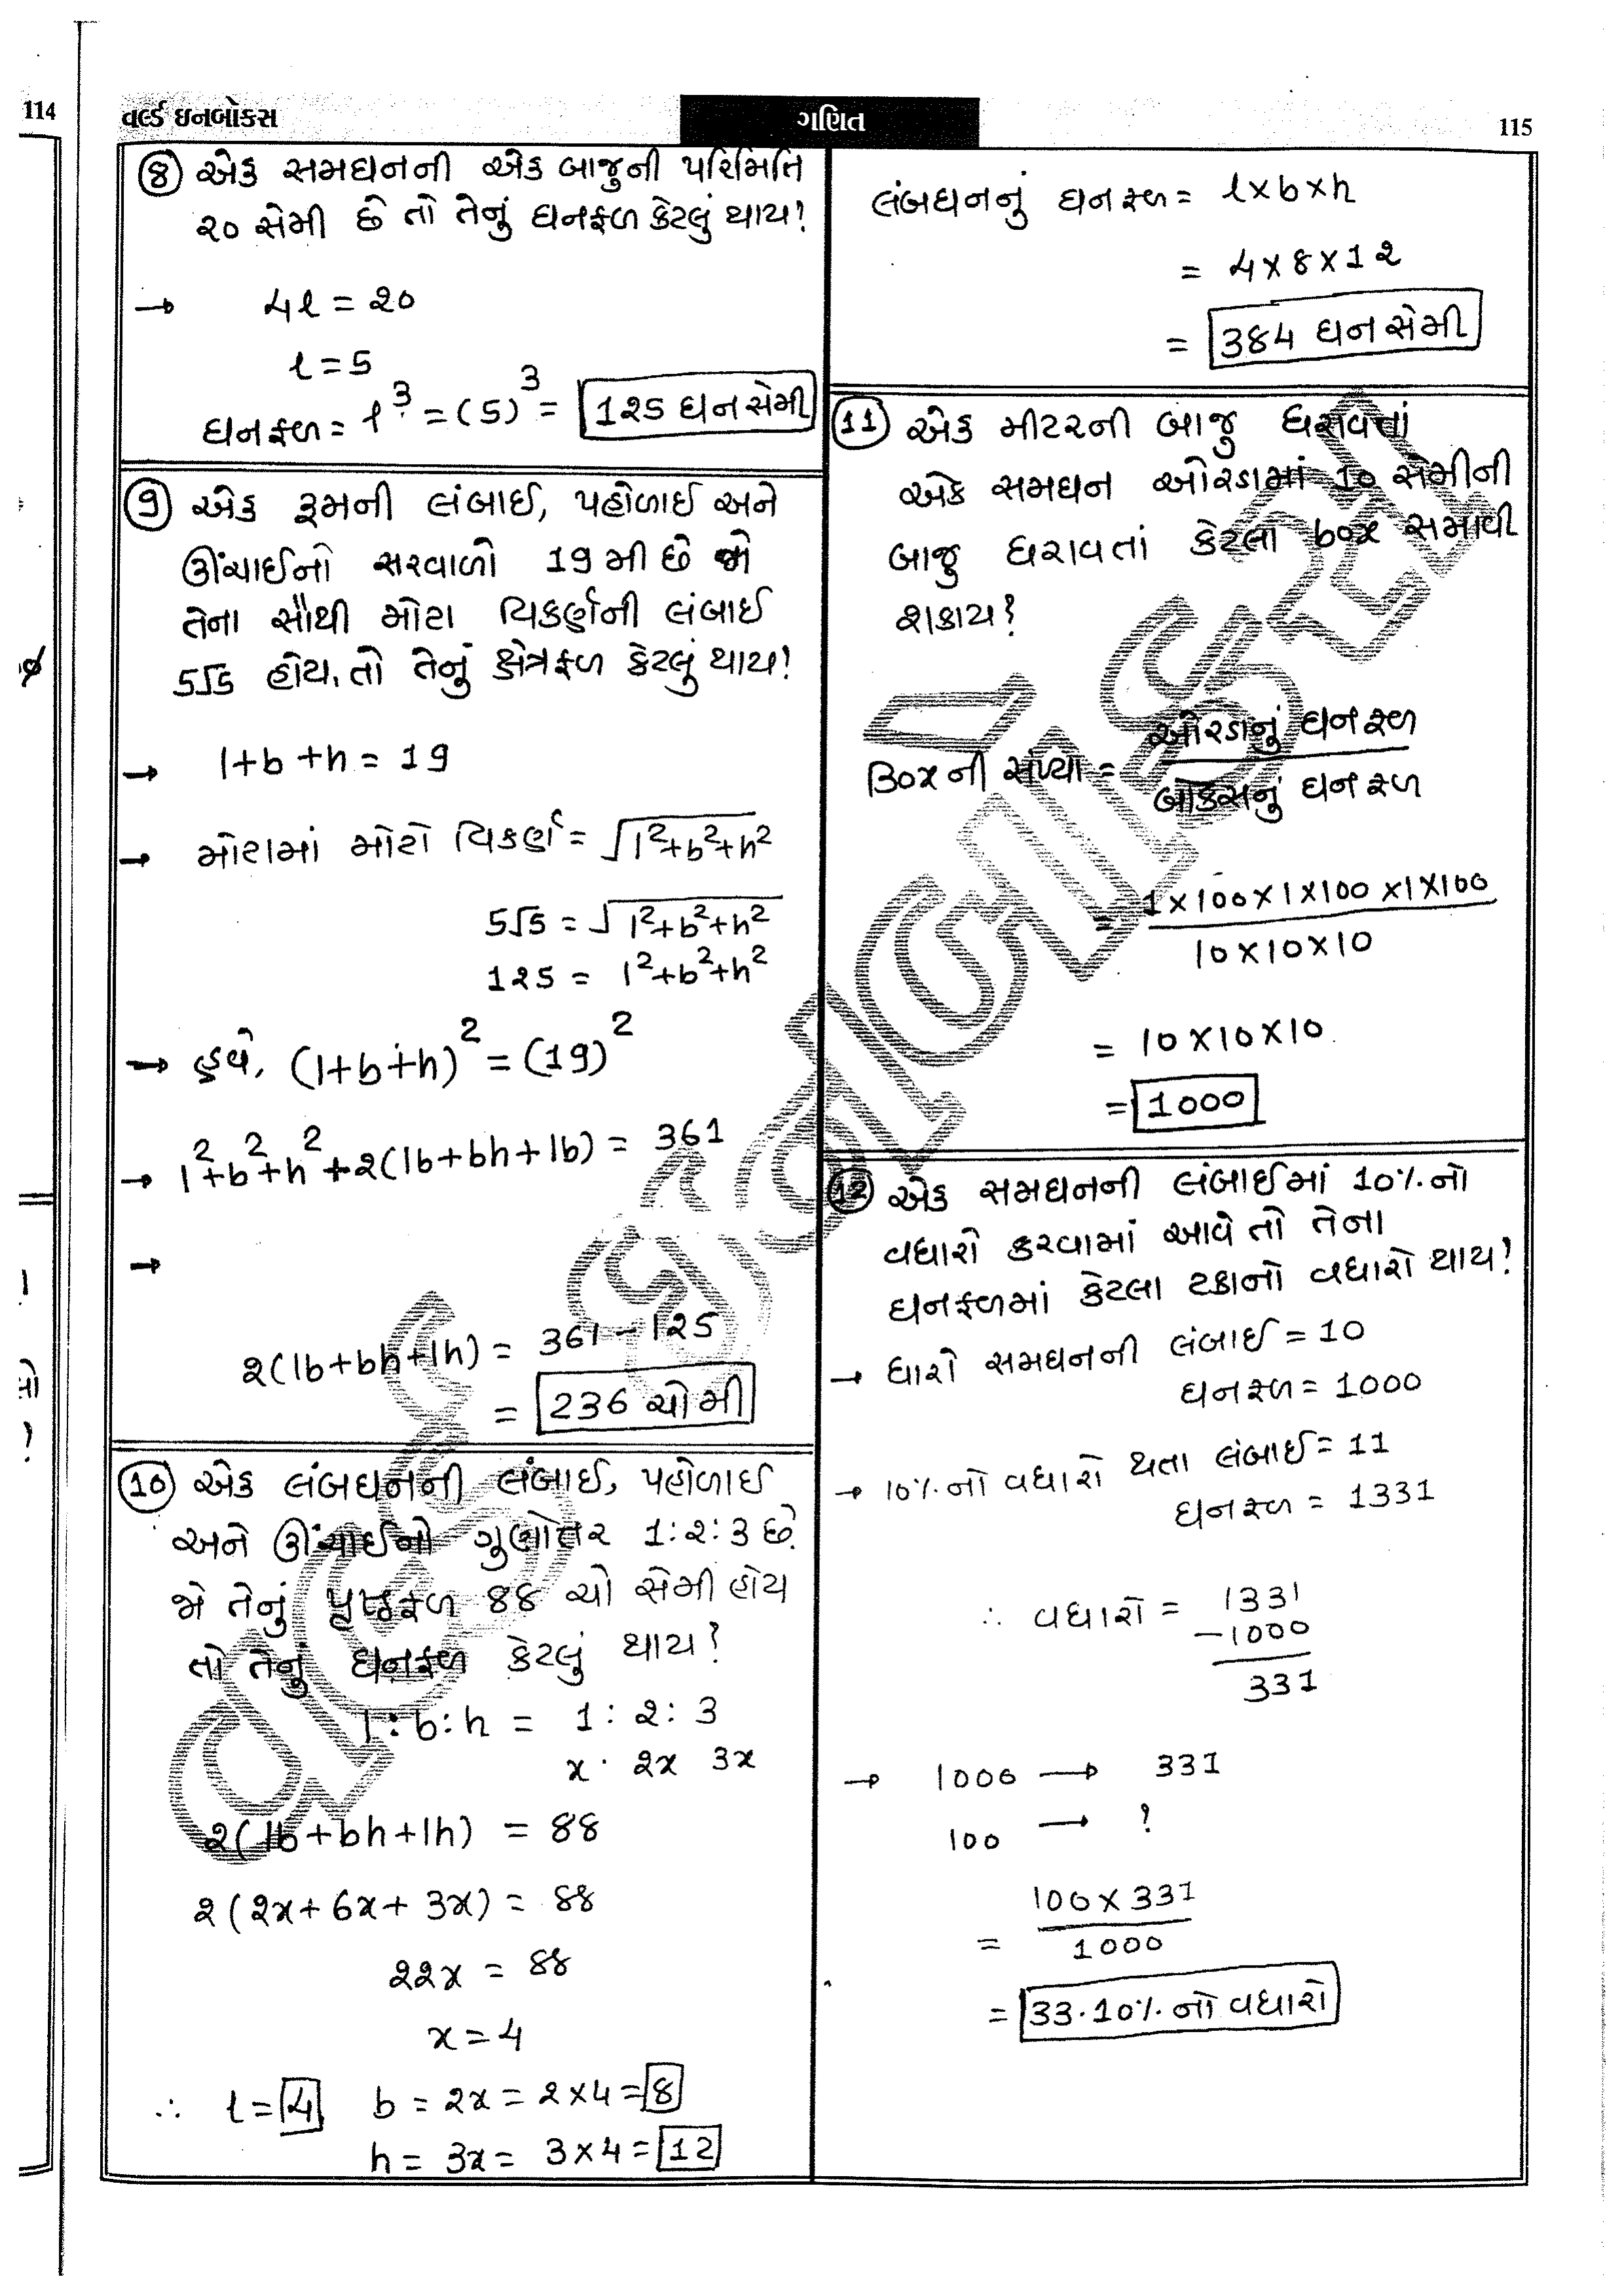 114
વર્લ્ડ ઇનબોક્સ
ગણિત
115
8 એક સમઘનની એક બાજુની પરિમિતિ
૨૦ સેમી છે તો તેનું ઘનફળ કેટલું થાય?
→ 4l = ૨0
l = 5
ઘનફળ = l³ = (5)³ = 1૨5 ઘન સેમી
9 એક રૂમની લંબાઈ, પહોળાઈ અને
ઊંચાઈનો સરવાળો 19 મી છે જો
તેના સૌથી મોટા વિકર્ણની લંબાઈ
5√5 હોય, તો તેનું ક્ષેત્રફળ કેટલું થાય?
→ l+b+h = 19
→ મોટામાં મોટો વિકર્ણ = √l²+b²+h²
5√5 = √l²+b²+h²
1૨5 = l²+b²+h²
→ હવે, (l+b+h)² = (19)²
→ l²+b²+h²+૨(lb+bh+lb) = 361
→
૨(lb+bh+lh) = 361-1૨5
= 236 ચો મી
10 એક લંબઘનની લંબાઈ, પહોળાઈ
અને ઊંચાઈનો ગુણોત્તર 1:૨:3 છે.
જો તેનું પૃષ્ઠફળ 88 ચો સેમી હોય
તો તેનું ઘનફળ કેટલું થાય?
l:b:h = 1:૨:3
x ૨x 3x
૨(lb+bh+lh) = 88
૨(૨x+6x+3x) = 88
૨૨x = 88
x = 4
∴ l = 4 b = ૨x = ૨×4 = 8
h = 3x = 3×4 = 12
લંબઘનનું ઘનફળ = l×b×h
= 4×8×1૨
= 384 ઘન સેમી
11 એક મીટરની બાજુ ધરાવતાં
એક સમઘન ઓરડામાં 10 સેમીની
બાજુ ધરાવતાં કેટલા box સમાવી
શકાય?
Box ની સંખ્યા = ઓરડાનું ઘનફળ
બોક્સનું ઘનફળ
= 1×100×1×100×1×100
10×10×10
= 10×10×10
= 1000
12 એક સમઘનની લંબાઈમાં 10% નો
વધારો કરવામાં આવે તો તેના
ઘનફળમાં કેટલા ટકાનો વધારો થાય?
→ ધારો સમઘનની લંબાઈ = 10
ઘનફળ = 1000
→ 10% નો વધારો થતા લંબાઈ = 11
ઘનફળ = 1331
∴ વધારો = 1331
-1000
331
→ 1000 → 331
100 → ?
= 100×331
1000
= 33.10% નો વધારો
વર્લ્ડ ઇનબોક્સ